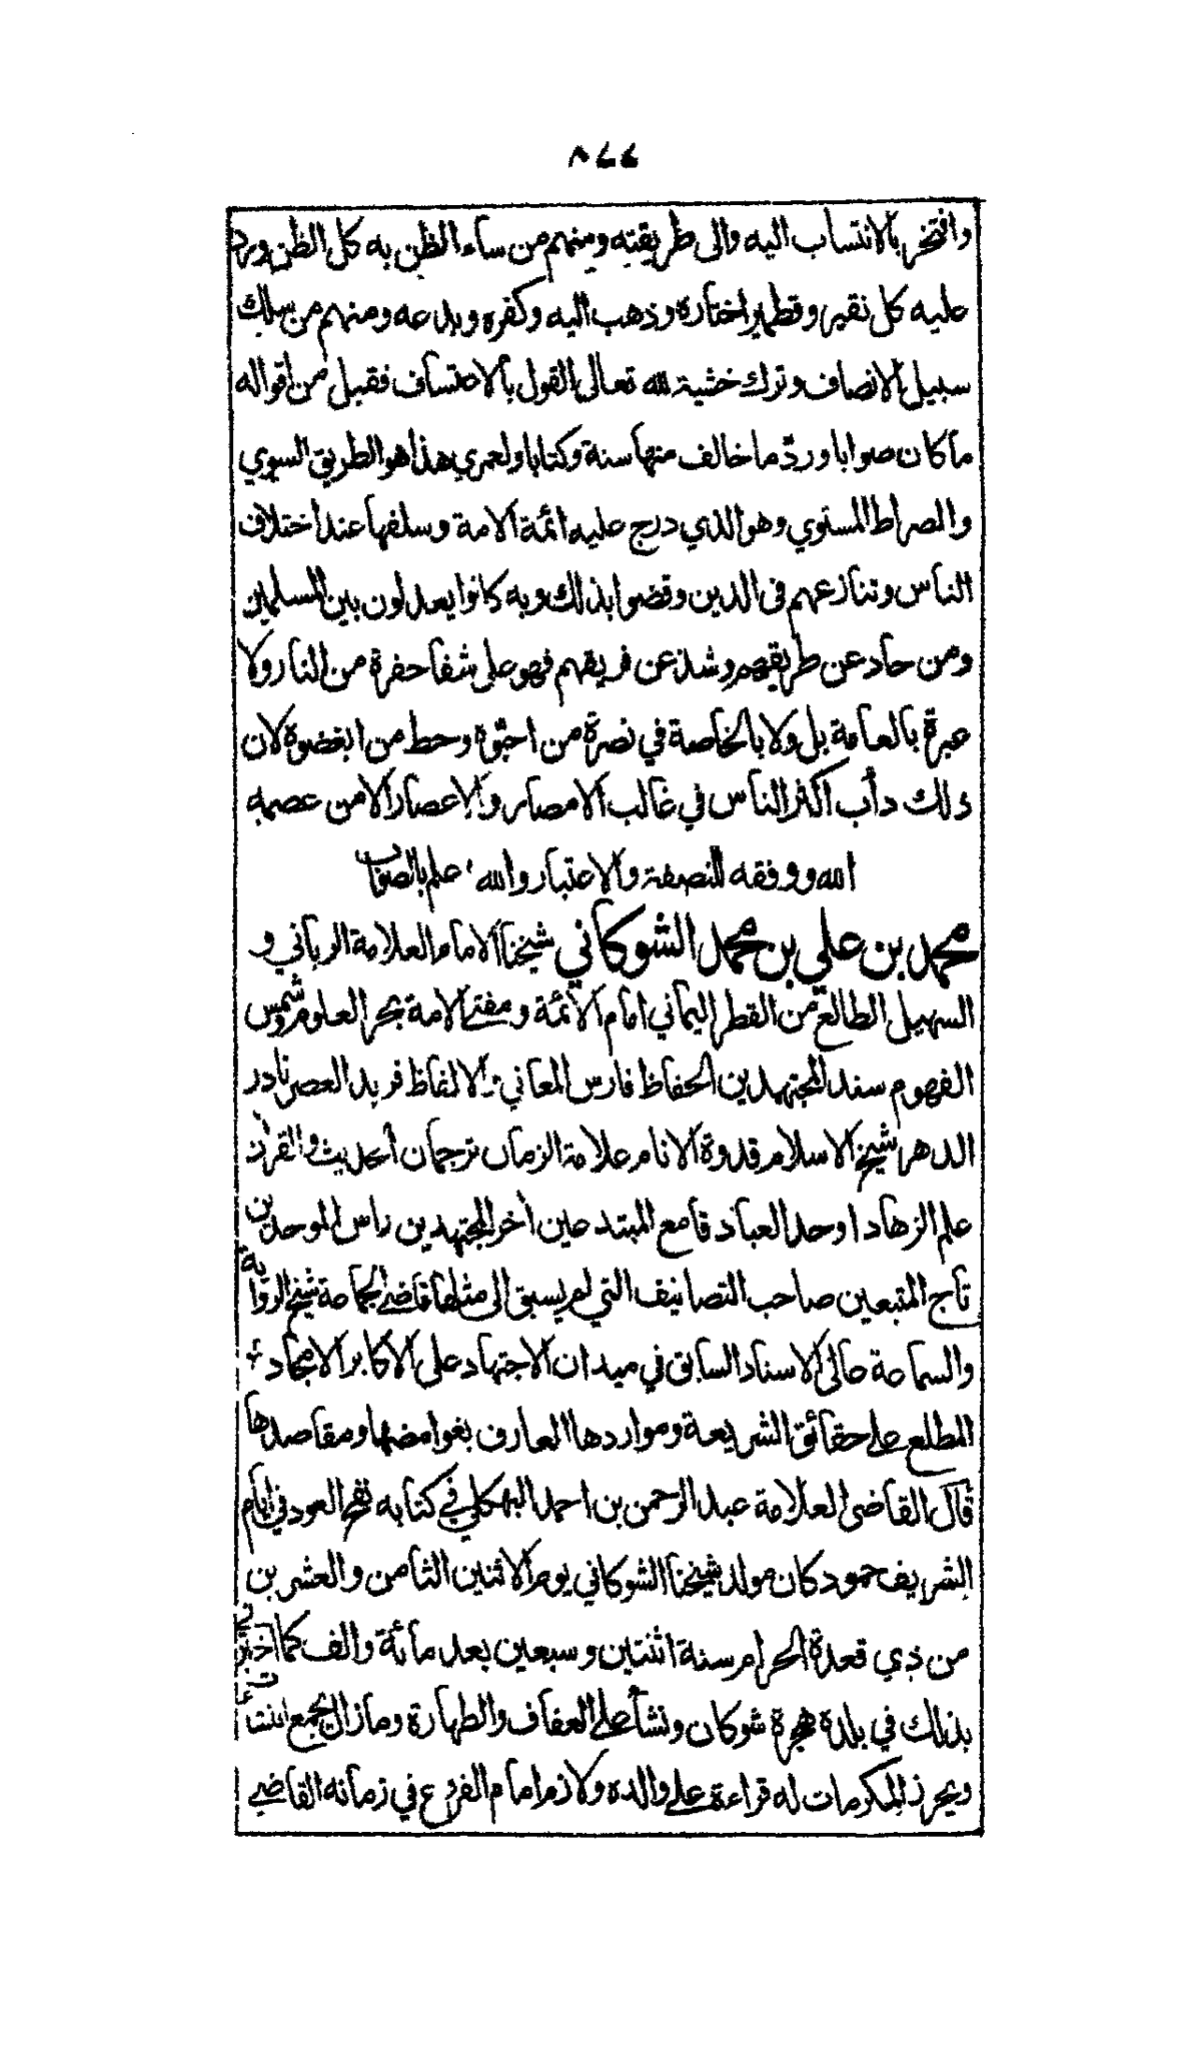 ٨٧٧
وافتخر بالانتساب اليه والى طريقته ومنهم من ساء الظن به كل الظن ورد
عليه كل نقير وقطمير اختاره وذهب اليه وكفره وبدعه ومنهم من سلك
سبيل الانصاف وترك خشية لله تعالى القول بالاعتساف فقبل من اقواله
ما كان صوابا وردّ ما خالف منها سنة وكتابا ولعمري هذا هو الطريق السوي
والصراط المستوي وهو الذي درج عليه ائمة الامة وسلفها عند اختلاف
الناس وتنازعهم فى الدين وقضوا بذلك وبه كانوا يعدلون بين المسلمين
ومن حاد عن طريقهم وشذ عن فريقهم فهو على شفا حفرة من النار ولا
عبرة بالعامة بل ولا بالخاصة في نصرة من احبّوه وحط من ابغضوه لان
ذلك دأب اكثر الناس في غالب الامصار والاعصار الا من عصمه
الله ووفقه للنصفة والاعتبار والله اعلم بالصواب
محمد بن علي بن محمد الشوكاني شيخنا الامام العلامة الرباني و
السهيل الطالع من القطر اليماني امام الائمة ومفتي الامة بحر العلوم وشمس
الفهوم سند المجتهدين الحفاظ فارس المعاني والالفاظ فريد العصر نادر
الدهر شيخ الاسلام قدوة الانام علامة الزمان ترجمان الحديث والقرآن
علم الزهاد اوحد العباد قامع المبتدعين آخر المجتهدين راس الموحدين
تاج المتبعين صاحب التصانيف التي لم يسبق الى مثلها قاضي الجماعة شيخ الرواية
والسماعة عالى الاسناد السابق في ميدان الاجتهاد على الاكابر الامجاد
المطلع على حقائق الشريعة ومواردها العارف بغوامضها ومقاصدها
قال القاضى العلامة عبد الرحمن بن احمد البهكلي في كتابه نفح العود في ايام
الشريف حمود كان مولد شيخنا الشوكاني يوم الاثنين الثامن والعشرين
من ذي قعدة الحرام سنة اثنتين وسبعين بعد مائة والف كما اخبرني
بذلك في بلدة هجرة شوكان ونشأ على العفاف والطهارة وما زال يجمع
ويحرز المكرمات له قراءة على والده ولازم امام الفروع في زمانه القاضي